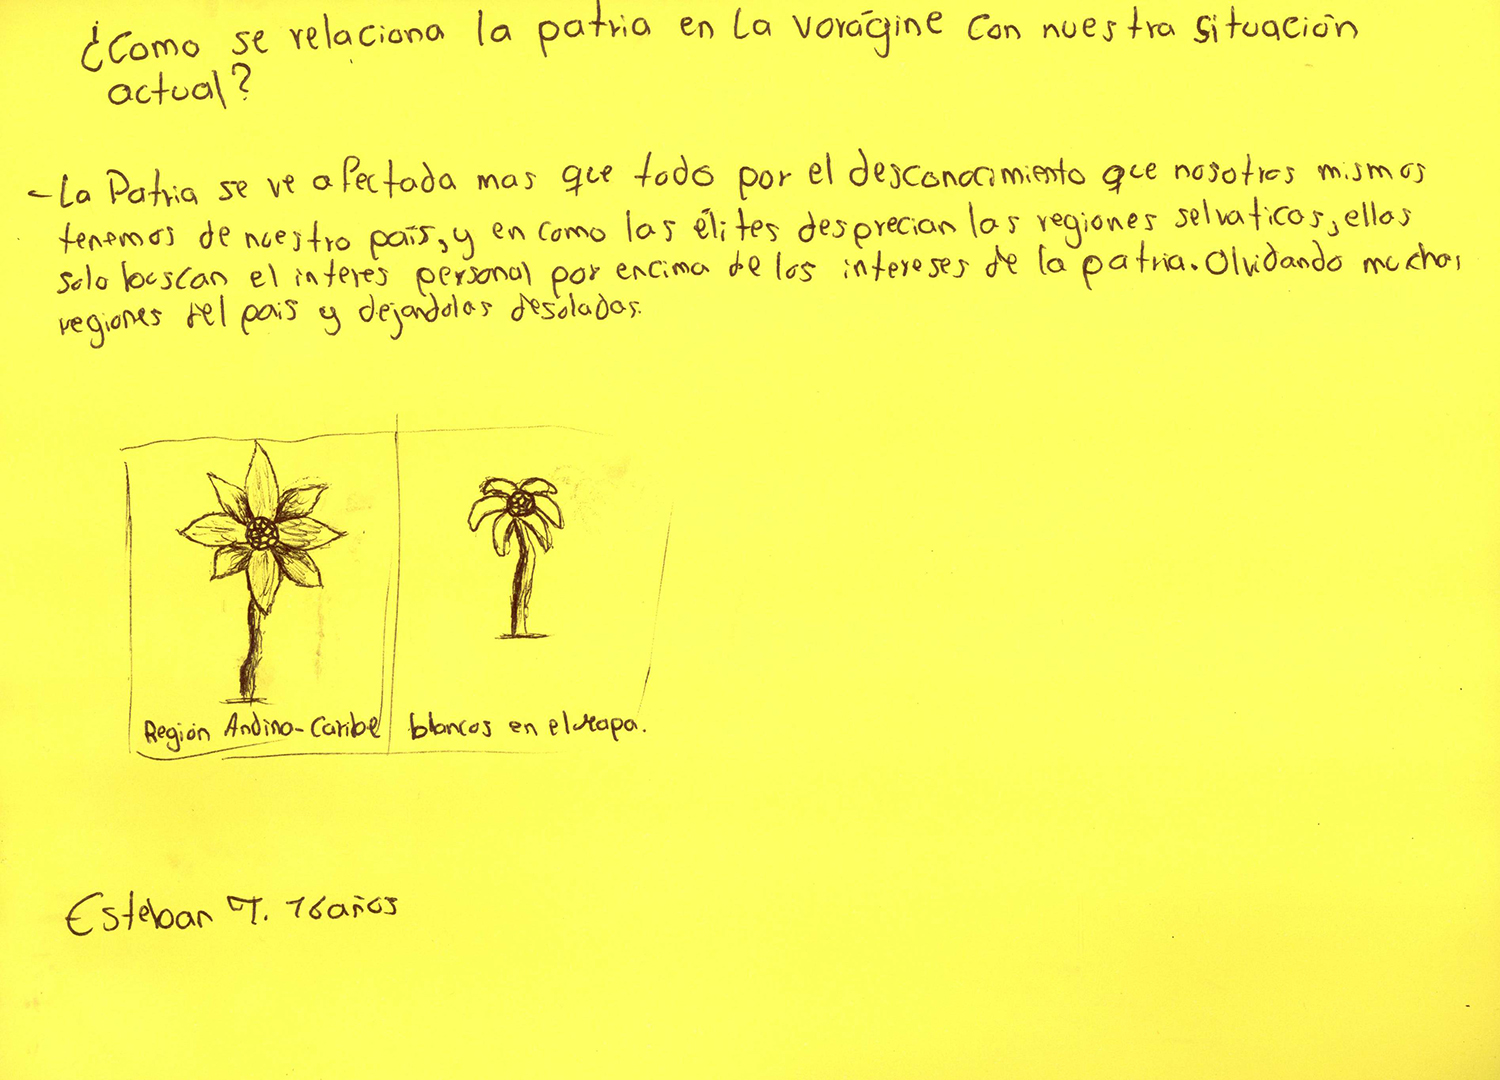 ¿Como se relaciona la patria en La vorágine con nuestra situación
actual?
- La Patria se ve afectada mas que todo por el desconocimiento que nosotros mismos
tenemos de nuestro país, y en como las élites desprecian las regiones selvaticas, ellos
solo buscan el interes personal por encima de los intereses de la patria. Olvidando muchas
regiones del pais y dejandolas desoladas.
Región Andino-Caribe
blancos en el Mapa.
Esteban T. 16 años